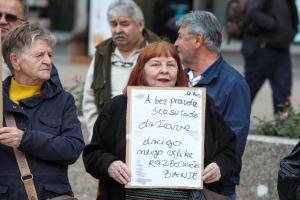 A bez pravde
što su to
države
drugo
nego velike
RAZBOJNIČKE
BANDE